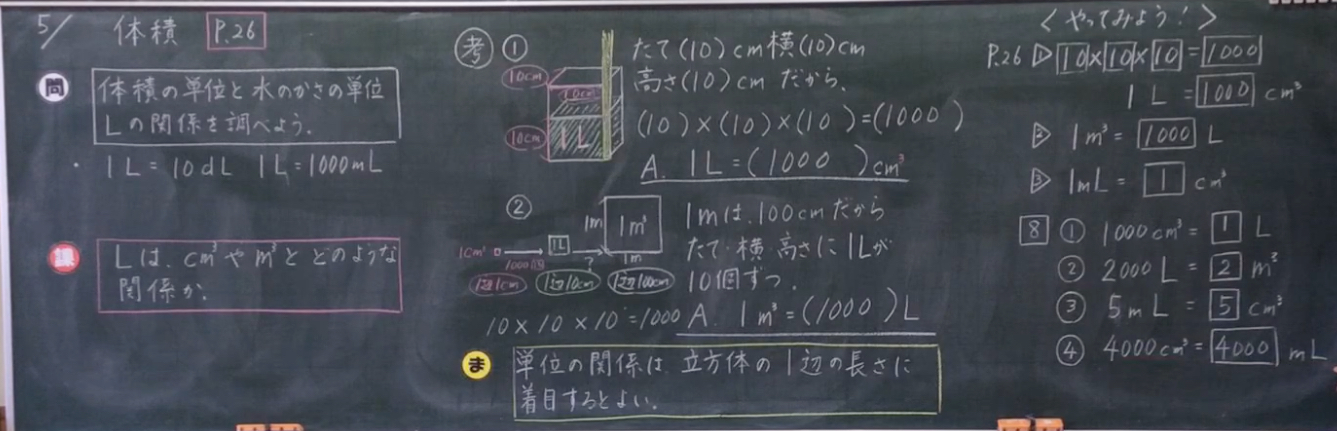 5/ 体積 P.26
問
体積の単位と水のかさの単位
Lの関係を調べよう。
・ 1L=10dL 1L=1000mL
課
Lは、cm³やm³とどのような
関係か。
考 ①
10cm
10cm
10cm
1L
たて(10)cm横(10)cm
高さ(10)cmだから、
(10)×(10)×(10)=(1000)
A. 1L=(1000)cm³
②
1cm³ 1000個 1L ? 1m 1m³ 1m
1辺1cm 1辺10cm 1辺100cm
1mは、100cmだから
たて・横・高さに1Lが
10個ずつ.
10×10×10=1000 A. 1m³=(1000)L
ま
単位の関係は、立方体の1辺の長さに
着目するとよい。
<やってみよう!>
P.26 ▷1 10×10×10=1000
1L=1000cm³
▷2 1m³=1000L
▷3 1mL=1cm³
8 ① 1000cm³=1L
② 2000L=2m³
③ 5mL=5cm³
④ 4000cm³=4000mL